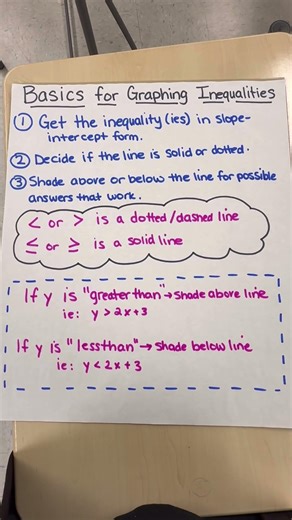 Basics for Graphing Inequalities
① Get the inequality(ies) in slope-
intercept form.
② Decide if the line is solid or dotted.
③ Shade above or below the line for possible
answers that work.
< or > is a dotted/dashed line
≤ or ≥ is a solid line
If y is "greater than" → shade above line
ie: y > 2x + 3
If y is "less than" → shade below line
ie: y < 2x + 3